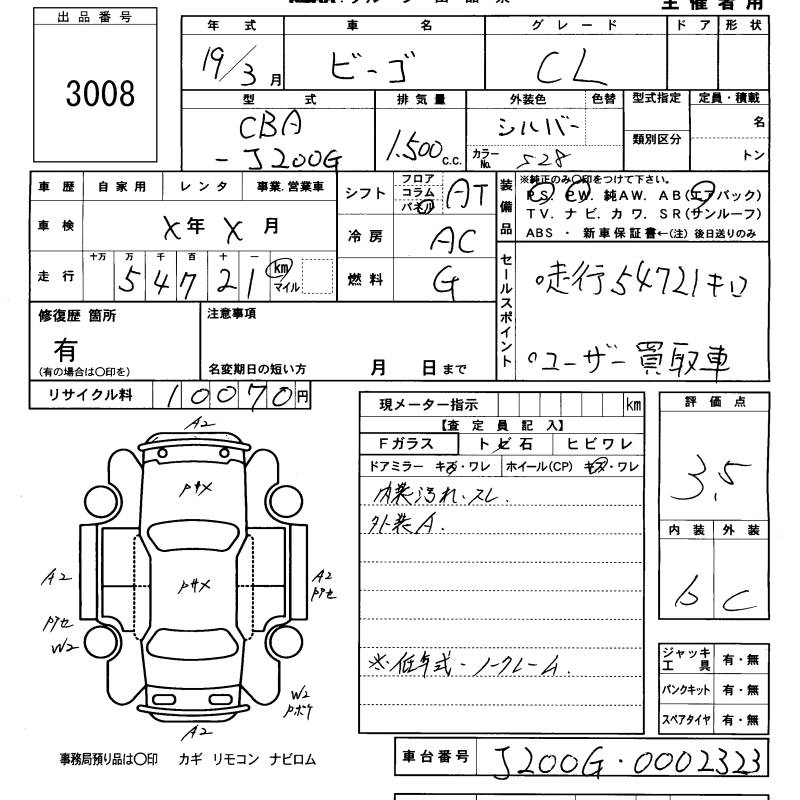 出品番号
3008
年式 車名 グレード ドア 形状
19/3月 ビーゴ CL
型式 排気量 外装色 色替 型式指定 定員・積載
CBA
-J200G 1.500c.c. シルバー 名
カラーNo. 528 類別区分 トン
車歴 自家用 レンタ 事業.営業車
車検 X年 X月
走行 十万 万 千 百 十 一
54721 km マイル
シフト フロア コラム パネル AT
冷房 AC
燃料 G
装備品
※純正のみ○印をつけて下さい。
PS. PW. 純AW. AB(エアバック)
TV. ナビ. カワ. SR(サンルーフ)
ABS ・ 新車保証書←(注) 後日送りのみ
セールスポイント
○走行54721キロ
○ユーザー買取車
修復歴 箇所
有
(有の場合は○印を)
注意事項
名変期日の短い方 月 日まで
リサイクル料 10070円
現メーター指示 km
【査定員記入】
Fガラス トビ石 ヒビワレ
ドアミラー キズ・ワレ ホイール(CP) キズ・ワレ
内装汚れ、スレ.
外装A.
※低年式・ノークレーム.
評価点
3.5
内装 外装
b C
ジャッキ工具 有・無
パンクキット 有・無
スペアタイヤ 有・無
A2
Pキメ
Pサメ
A2
Pアセ
W2
A2
Pアセ
W2
Pボケ
A2
事務局預り品は○印 カギ リモコン ナビロム
車台番号 J200G・0002323